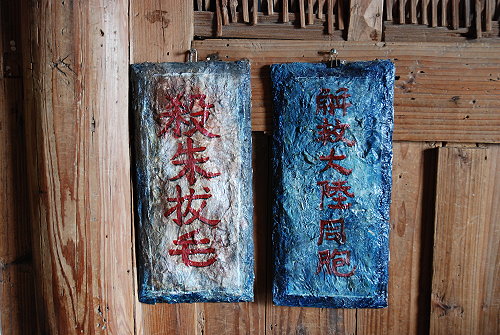 解救大陸同胞
殺朱拔毛